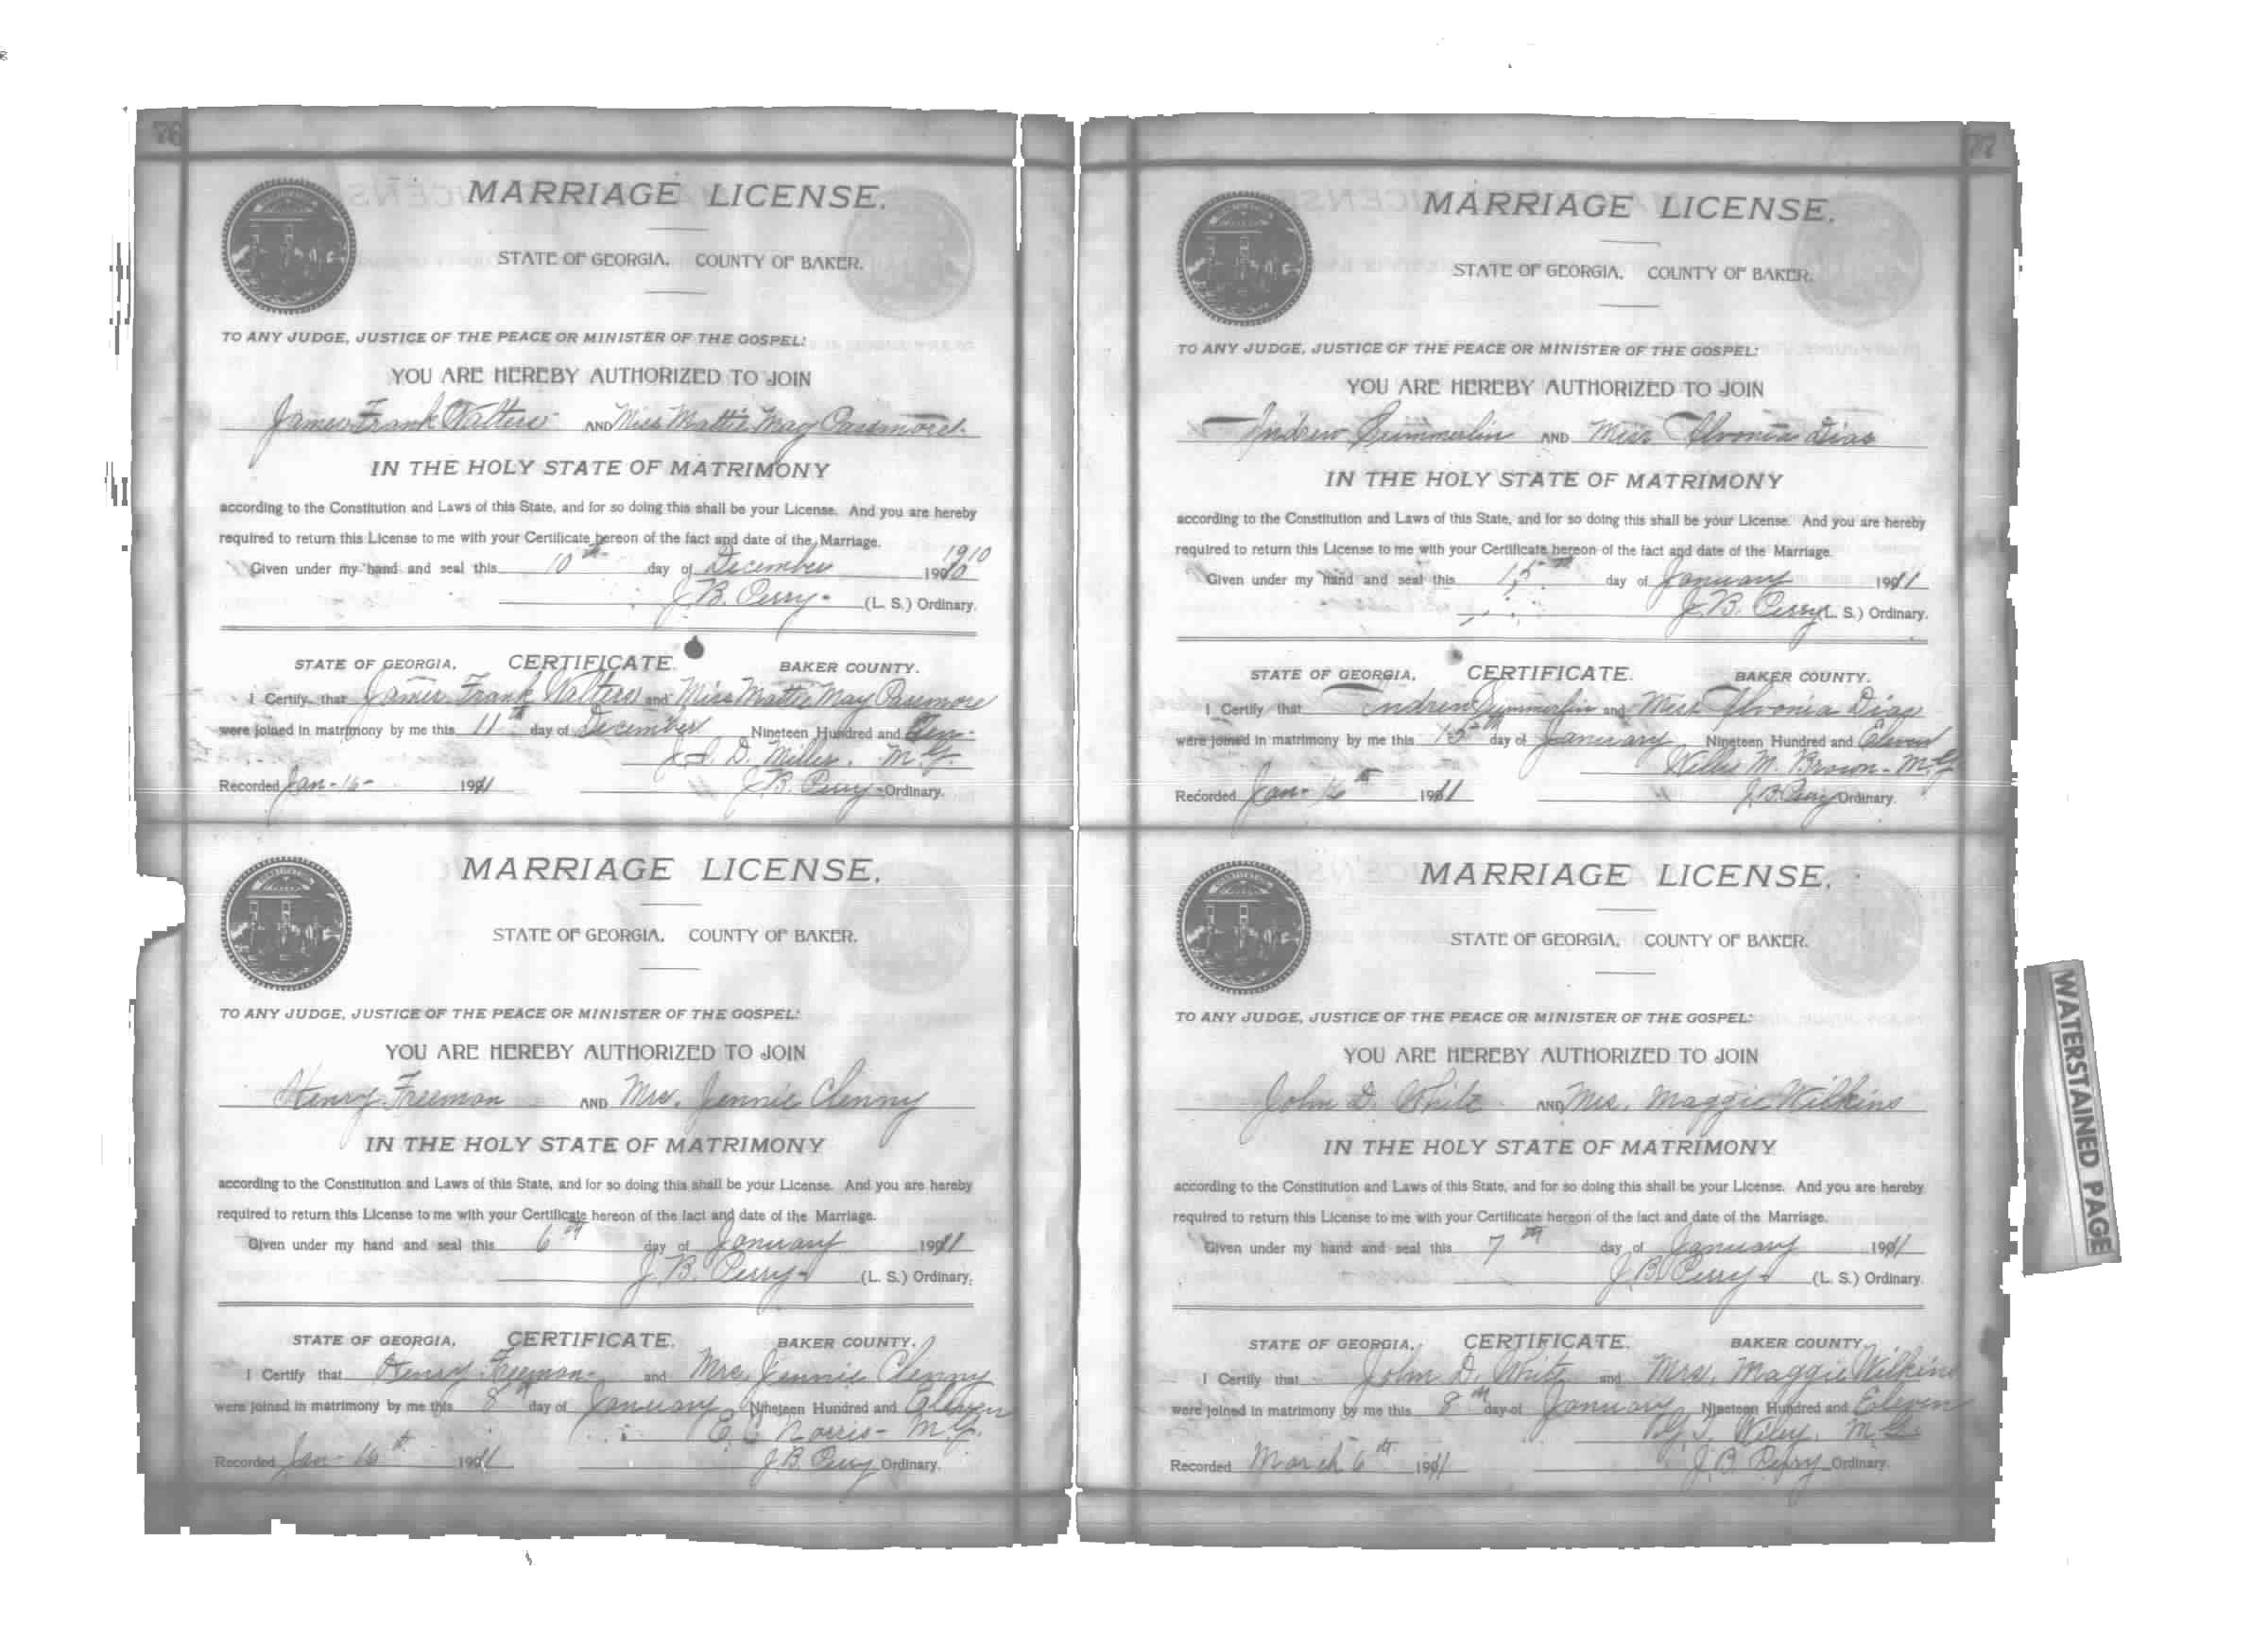 76
MARRIAGE LICENSE.
STATE OF GEORGIA. COUNTY OF BAKER.
TO ANY JUDGE, JUSTICE OF THE PEACE OR MINISTER OF THE GOSPEL:
YOU ARE HEREBY AUTHORIZED TO JOIN
James Frank Walters AND Miss Mattie May Passmore.
IN THE HOLY STATE OF MATRIMONY
according to the Constitution and Laws of this State, and for so doing this shall be your License. And you are hereby
required to return this License to me with your Certificate hereon of the fact and date of the Marriage.
1910
Given under my hand and seal this 10th day of December 1910
J. B. Perry (L. S.) Ordinary.
STATE OF GEORGIA. CERTIFICATE. BAKER COUNTY.
I Certify that James Frank Walters and Miss Mattie May Passmore
were joined in matrimony by me this 11th day of December Nineteen Hundred and Ten
D. Miller. M.G.
Recorded Jan-16- 1911 J. B. Perry Ordinary.
MARRIAGE LICENSE.
STATE OF GEORGIA. COUNTY OF BAKER.
TO ANY JUDGE, JUSTICE OF THE PEACE OR MINISTER OF THE GOSPEL:
YOU ARE HEREBY AUTHORIZED TO JOIN
Henry Freeman AND Mrs. Jennie Clenny
IN THE HOLY STATE OF MATRIMONY
according to the Constitution and Laws of this State, and for so doing this shall be your License. And you are hereby
required to return this License to me with your Certificate hereon of the fact and date of the Marriage.
Given under my hand and seal this 6th day of January 1911
J. B. Perry (L. S.) Ordinary.
STATE OF GEORGIA. CERTIFICATE. BAKER COUNTY.
I Certify that Henry Freeman and Mrs. Jennie Clenny
were joined in matrimony by me this 8th day of January Nineteen Hundred and Eleven
E. C. Norris- M.G.
Recorded Jan-16th 1911 J. B. Perry Ordinary.
77
MARRIAGE LICENSE.
STATE OF GEORGIA. COUNTY OF BAKER.
TO ANY JUDGE, JUSTICE OF THE PEACE OR MINISTER OF THE GOSPEL:
YOU ARE HEREBY AUTHORIZED TO JOIN
Andrew Summerlin AND Miss Dias
IN THE HOLY STATE OF MATRIMONY
according to the Constitution and Laws of this State, and for so doing this shall be your License. And you are hereby
required to return this License to me with your Certificate hereon of the fact and date of the Marriage.
Given under my hand and seal this 15th day of January 1911
J. B. Perry (L. S.) Ordinary.
STATE OF GEORGIA. CERTIFICATE. BAKER COUNTY.
I Certify that Andrew Summerlin and Miss Dias
were joined in matrimony by me this 15th day of January Nineteen Hundred and Eleven
Willis M. Brown- M.G
Recorded Jan-16th 1911 J. B. Perry Ordinary.
MARRIAGE LICENSE.
STATE OF GEORGIA. COUNTY OF BAKER.
TO ANY JUDGE, JUSTICE OF THE PEACE OR MINISTER OF THE GOSPEL:
YOU ARE HEREBY AUTHORIZED TO JOIN
John D. White AND Mrs. Maggie Wilkins
IN THE HOLY STATE OF MATRIMONY
according to the Constitution and Laws of this State, and for so doing this shall be your License. And you are hereby
required to return this License to me with your Certificate hereon of the fact and date of the Marriage.
Given under my hand and seal this 7th day of January 1911
J. B. Perry (L. S.) Ordinary.
STATE OF GEORGIA. CERTIFICATE. BAKER COUNTY.
I Certify that John D. White and Mrs. Maggie Wilkins
were joined in matrimony by me this 8th day of January Nineteen Hundred and Eleven
Wiley. M.G.
Recorded March 6th 1911 J. B. Perry Ordinary.
WATERSTAINED PAGE